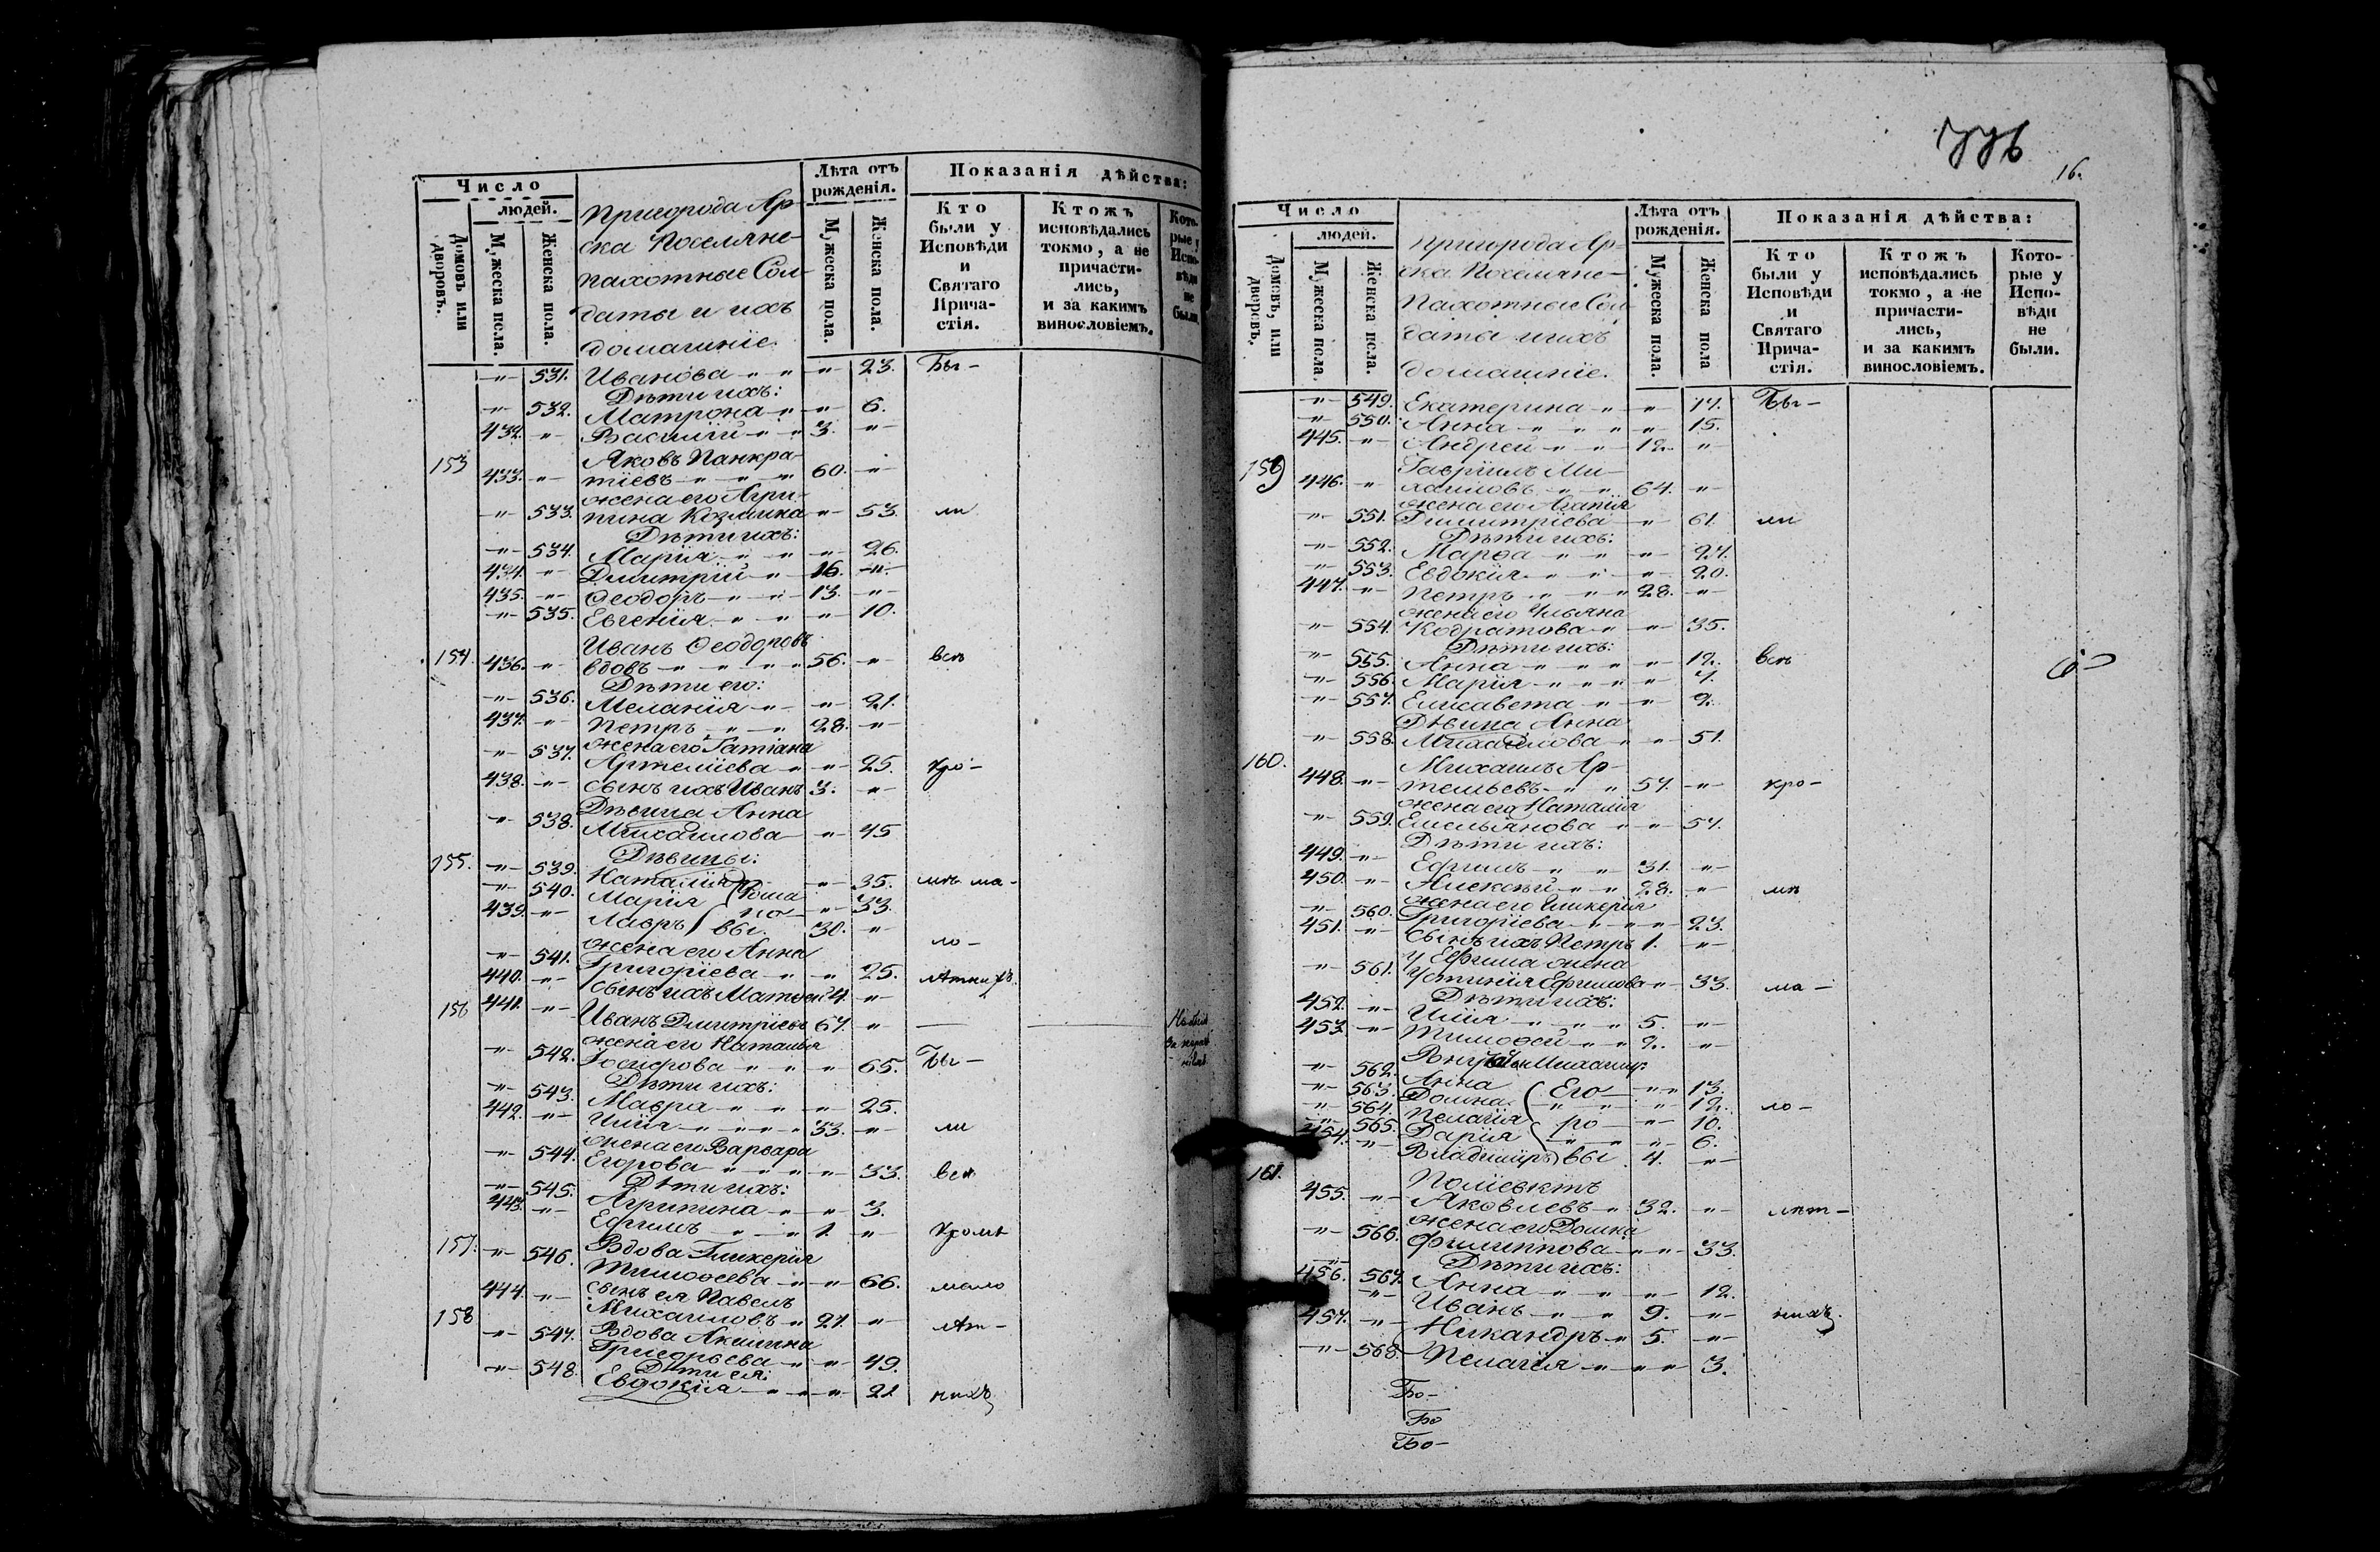 Число
людей.
Домовъ или дворовъ.
Мужеска пола.
Женска пола.
Пригорода Ар-
ска Поселяне
пахотные Сол-
даты и ихъ
домашніе.
Лѣта отъ рожденія.
Мужеска пола.
Женска пола.
Показанія дѣйства:
Кто были у Исповѣди и Святаго Прича-стія.
Ктожъ исповѣдались токмо, а не причасти-лись, и за какимъ винословіемъ.
Кото-рые у Испо-вѣди не были.
-"- 531. Иванова -"- 23. Бы-
Дѣти ихъ:
-"- 532. Матрона -"- 6.
432. -"- Василій 3. -"-
153 Яковъ Панкра-
433. -"- тіевъ 60. -"-
жена его Агри-
-"- 533. пина Козмина -"- 53. ли
Дѣти ихъ:
-"- 534. Марія -"- 26.
434. -"- Димитрій 16. -"-
435. -"- Ѳеодоръ 13. -"-
-"- 535. Евгенія -"- 10.
Иванъ Ѳеодоровъ
154. 436. -"- вдовъ 56. -"- всѣ
Дѣти его:
-"- 536. Меланія -"- 21.
437. -"- Петръ 28. -"-
жена его Татіана
-"- 537. Артеміева -"- 25. кро-
438. -"- сынъ ихъ Иванъ 3. -"-
Дѣвица Анна
-"- 538. Михаилова -"- 45
155. Дѣвицы:
-"- 539. Наталія -"- 35. мѣ ма-
-"- 540. Марія -"- 33.
439. -"- Лавръ вы. 30. -"-
жена его Анна ло-
-"- 541. Григоріева -"- 25. лѣтнихъ.
440. -"- сынъ ихъ Матѳей 4. -"-
156 441. -"- Иванъ Димитріевъ 67. -"-
жена его Наталья
-"- 542. -"- 65. Бы-
Дѣти ихъ:
-"- 543. Мавра -"- 25.
442. -"- Илія 33. -"- ли
жена его Варвара
-"- 544. Егорова -"- 33. всѣ
Дѣти ихъ:
-"- 545. Агрипина -"- 3.
443. -"- Ефимъ 1. -"- кромѣ
157. Вдова Гликерія
-"- 546. Тимоѳеева -"- 66. мало
444. -"- сынъ ея Павелъ
Михаиловъ 27. -"- лѣт-
158 Вдова Акилина
-"- 547. Григорьева -"- 49.
Дѣти ея:
-"- 548. Евдокія -"- 22 нихъ
776
16.
Число
людей.
Домовъ, или дворовъ.
Мужеска пола.
Женска пола.
Пригорода Ар-
ска Поселяне
Пахотные Сол-
даты и ихъ
домашніе.
Лѣта отъ рожденія.
Мужеска пола.
Женска пола
Показанія дѣйства:
Кто были у Исповѣди и Святаго Прича-стія.
Ктожъ исповѣдались токмо, а не причасти-лись, и за какимъ винословіемъ.
Кото-рые у Испо-вѣди не были.
-"- 549. Екатерина -"- 17. Бы-
-"- 550. Анна -"- 15.
445. -"- Андрей 12. -"-
159 Гавріилъ Ми-
446. -"- хаиловъ 64. -"-
жена его Агапія
-"- 551. Димитріева -"- 61. ли
Дѣти ихъ:
-"- 552. Марѳа -"- 27.
-"- 553. Евдокія -"- 20.
447. -"- Петръ 28. -"-
жена его Ульяна
-"- 554. Кодратова -"- 35.
Дѣти ихъ:
-"- 555. Анна -"- 12. всѣ
-"- 556. Марія -"- 7.
-"- 557. Елисавета -"- 2.
Дѣвица Анна
-"- 558. Михайлова -"- 51.
160. Михаилъ Ар-
448. -"- темьевъ 57. -"- кро-
жена его Наталія
-"- 559. Емельянова -"- 57.
Дѣти ихъ:
449. -"- Ефимъ 31. -"-
450. -"- Алексѣй 28. -"- мѣ
жена его Гликерія
-"- 560. Григоріева -"- 23.
451. -"- сынъ ихъ Петръ 1. -"-
У Ефима жена
-"- 561. Устинія Ефимова -"- 33. ма-
Дѣти ихъ:
452. -"- Илія 5. -"-
453. -"- Тимоѳей 2. -"-
-"- 562. Анна Его -"- 13.
-"- 563. Домна -"- 12. ло-
-"- 564. Пелагія ро- -"- 10.
-"- 565. Дарія -"- 6.
454. -"- Владиміръ вы 4. -"-
161. Поліевктъ
455. -"- Яковлевъ 32. -"- лѣт-
жена его Домна
-"- 566. Филиппова -"- 33.
Дѣти ихъ:
-"- 567. Анна -"- 12.
456. -"- Иванъ 9. -"- нихъ.
457. -"- Никандръ 5. -"-
-"- 568. Пелагія -"- 3.
Бо-
Бо
Бо-